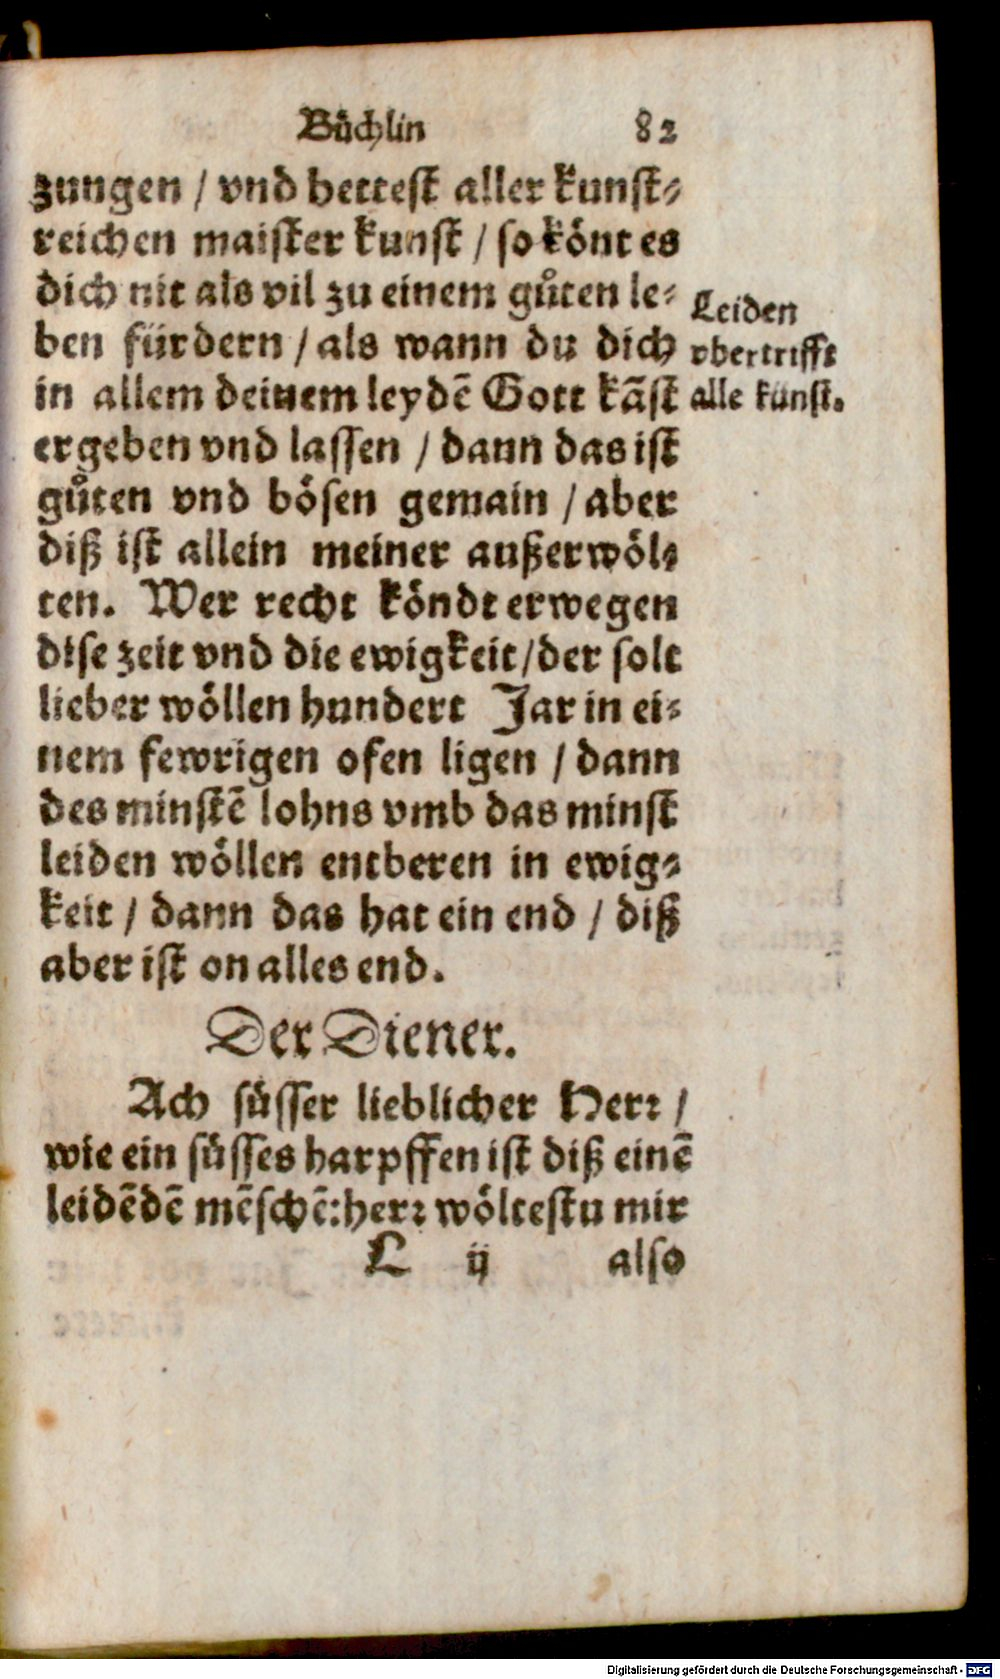 Bůchlin 82
zungen / vnd hettest aller kunst⸗
reichen maister kunst / so könt es
dich nit als vil zu einem gůten le⸗
ben fürdern / als wann du dich
in allem deinem leydē Gott kāst
ergeben vnd lassen / dann das ist
gůten vnd bösen gemain / aber
diß ist allein meiner außerwöl⸗
ten. Wer recht köndt erwegen
dise zeit vnd die ewigkeit / der solt
lieber wöllen hundert Jar in ei⸗
nem fewrigen ofen ligen / dann
des minstē lohns vmb das minst
leiden wöllen entberen in ewig⸗
keit / dann das hat ein end / diß
aber ist on alles end.
Leiden
vbertrifft
alle kunst.
Der Diener.
Ach süsser lieblicher Herr /
wie ein süsses harpffen ist diß einē
leidēdē mēschē: herr wöltestu mir
L ij also
Digitalisierung gefördert durch die Deutsche Forschungsgemeinschaft - DFG